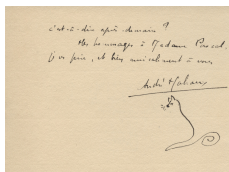 c'est-à-dire après-demain ?
Mes hommages à Madame Pascal,
je vous prie, et bien amicalement à vous
André Malraux